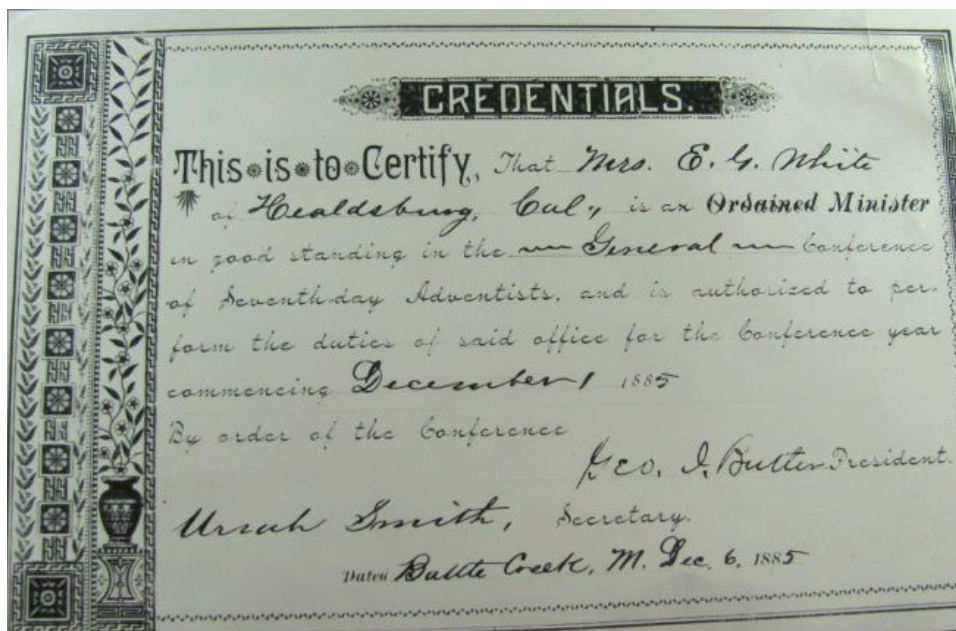 CREDENTIALS.
This is to Certify, That Mrs. E. G. White
of Healdsburg, Cal., is an Ordained Minister
in good standing in the General Conference
of Seventh-day Adventists, and is authorized to per-
form the duties of said office for the Conference year
commencing December 1 1885
By order of the Conference.
Geo. I. Butler President.
Uriah Smith, Secretary.
Dated Battle Creek, M. Dec. 6, 1885